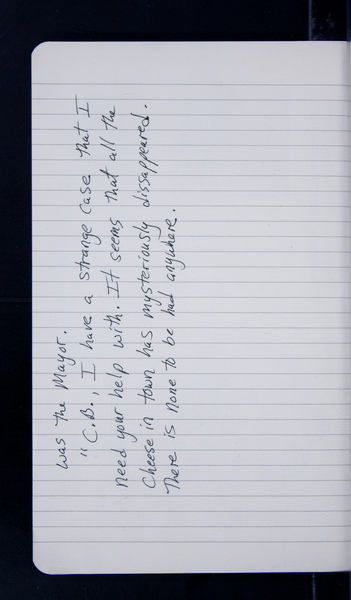 was the Mayor.
"C.B., I have a strange case that I
need your help with. It seems that all the
Cheese in town has mysteriously dissappeared.
There is none to be had anywhere.